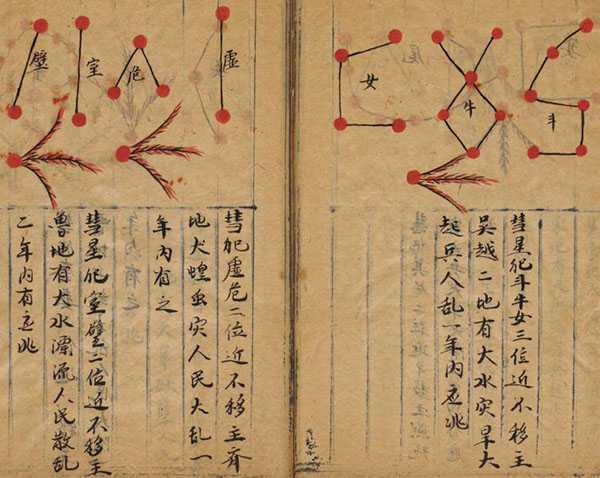 斗
牛
女
彗星犯斗牛女三位近不移主
吳越二地有大水灾旱大
起兵人乱一年内应兆
虛
危
室
壁
彗犯虛危二位近不移主齊
地犬蝗虫灾人民大乱一
年内有之
彗星犯室壁二位近不移主
魯地有大水漂流人民散乱
二年内有应兆